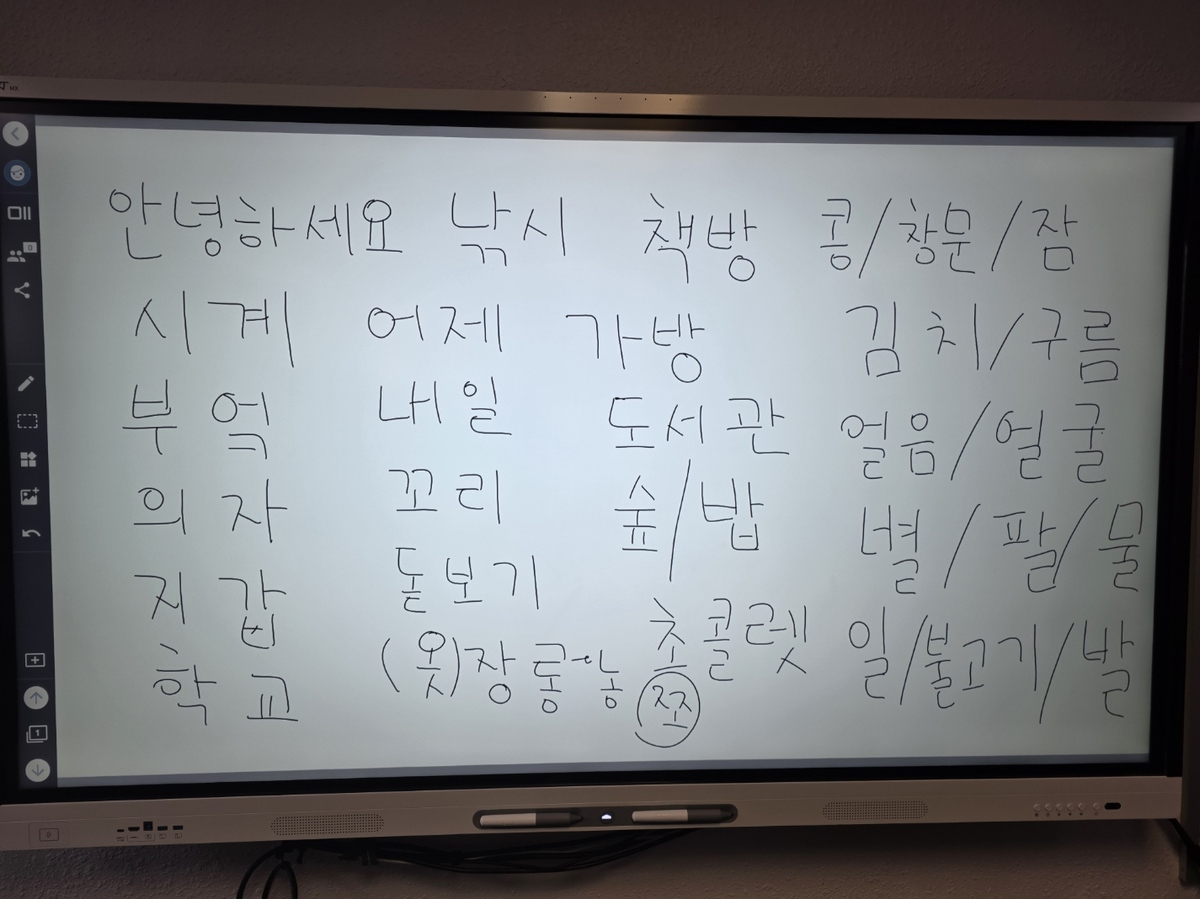 안녕하세요 낚시 책방 콩/창문/잠
시계 어제 가방 김치/구름
부엌 내일 도서관 얼음/얼굴
의자 꼬리 숲/밥 별/팔/물
지갑 돋보기 초콜렛 일/불고기/발
학교 (옷)장롱~농 쪼